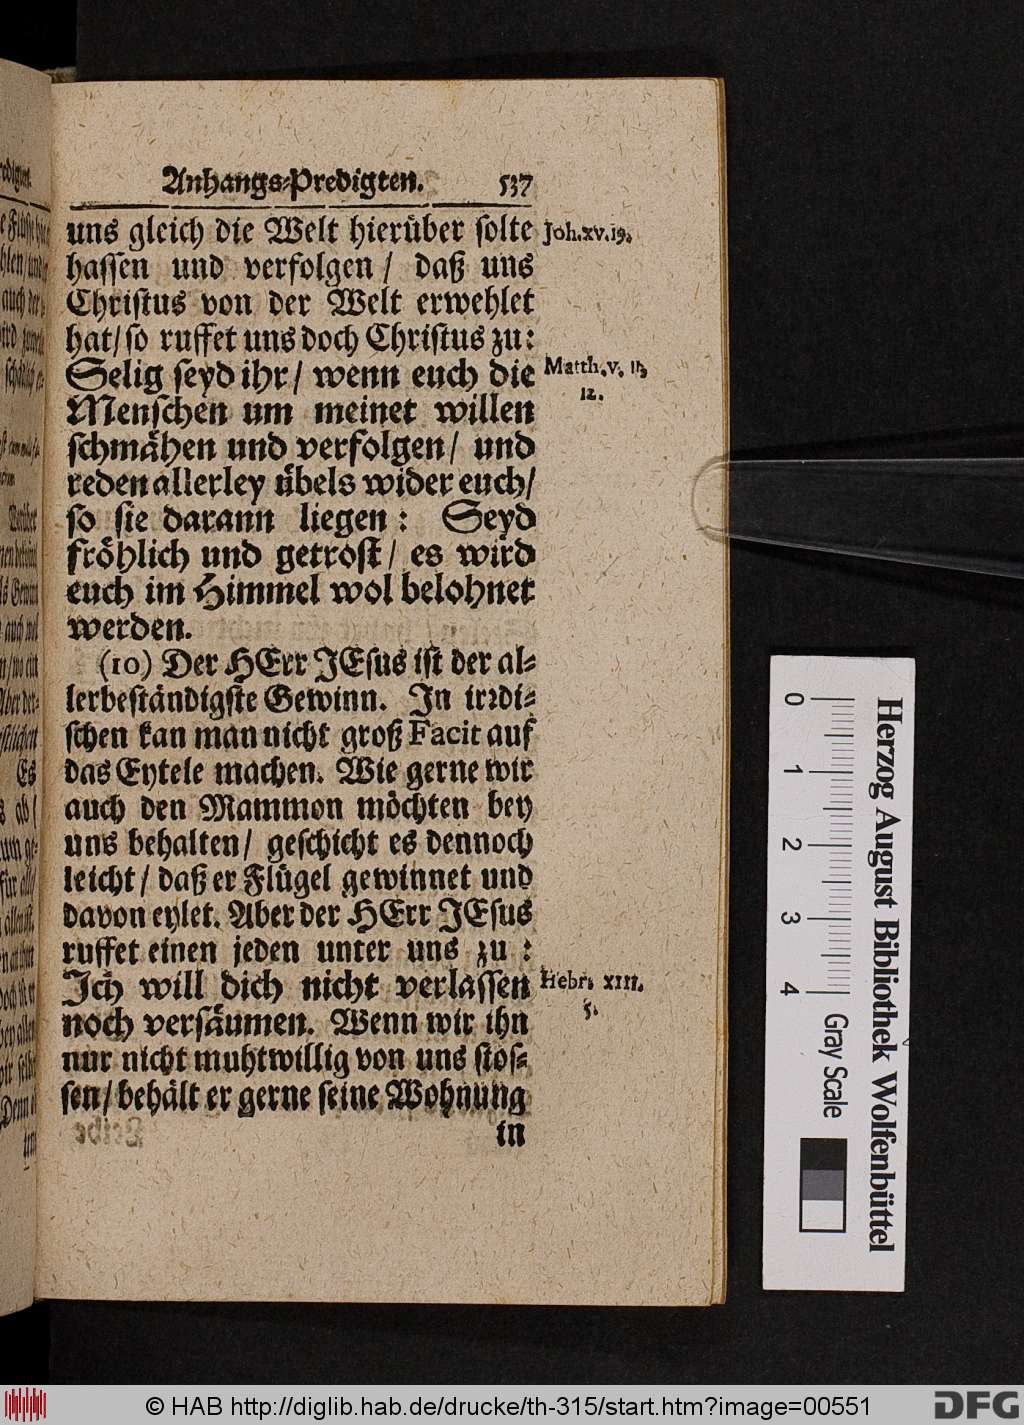 Anhangs-Predigten. 537
uns gleich die Welt hierüber solte Joh. xv. 19.
hassen und verfolgen / daß uns
Christus von der Welt erwehlet
hat / so ruffet uns doch Christus zu:
Selig seyd ihr / wenn euch die Matth. v. 11,
Menschen um meinet willen 12.
schmähen und verfolgen / und
reden allerley übels wider euch /
so sie darann liegen: Seyd
fröhlich und getrost / es wird
euch im Himmel wol belohnet
werden.
(10) Der HErr JEsus ist der al-
lerbeständigste Gewinn. In irrdi-
schen kan man nicht groß Facit auf
das Eytele machen. Wie gerne wir
auch den Mammon möchten bey
uns behalten / geschicht es dennoch
leicht / daß er Flügel gewinnet und
davon eylet. Aber der HErr JEsus
ruffet einen jeden unter uns zu:
Ich will dich nicht verlassen Hebr. XIII.
noch versäumen. Wenn wir ihn 5.
nur nicht muhtwillig von uns stos-
sen / behält er gerne seine Wohnung
in
0 1 2 3 4 Gray Scale
Herzog August Bibliothek Wolfenbüttel
© HAB http://diglib.hab.de/drucke/th-315/start.htm?image=00551
DFG